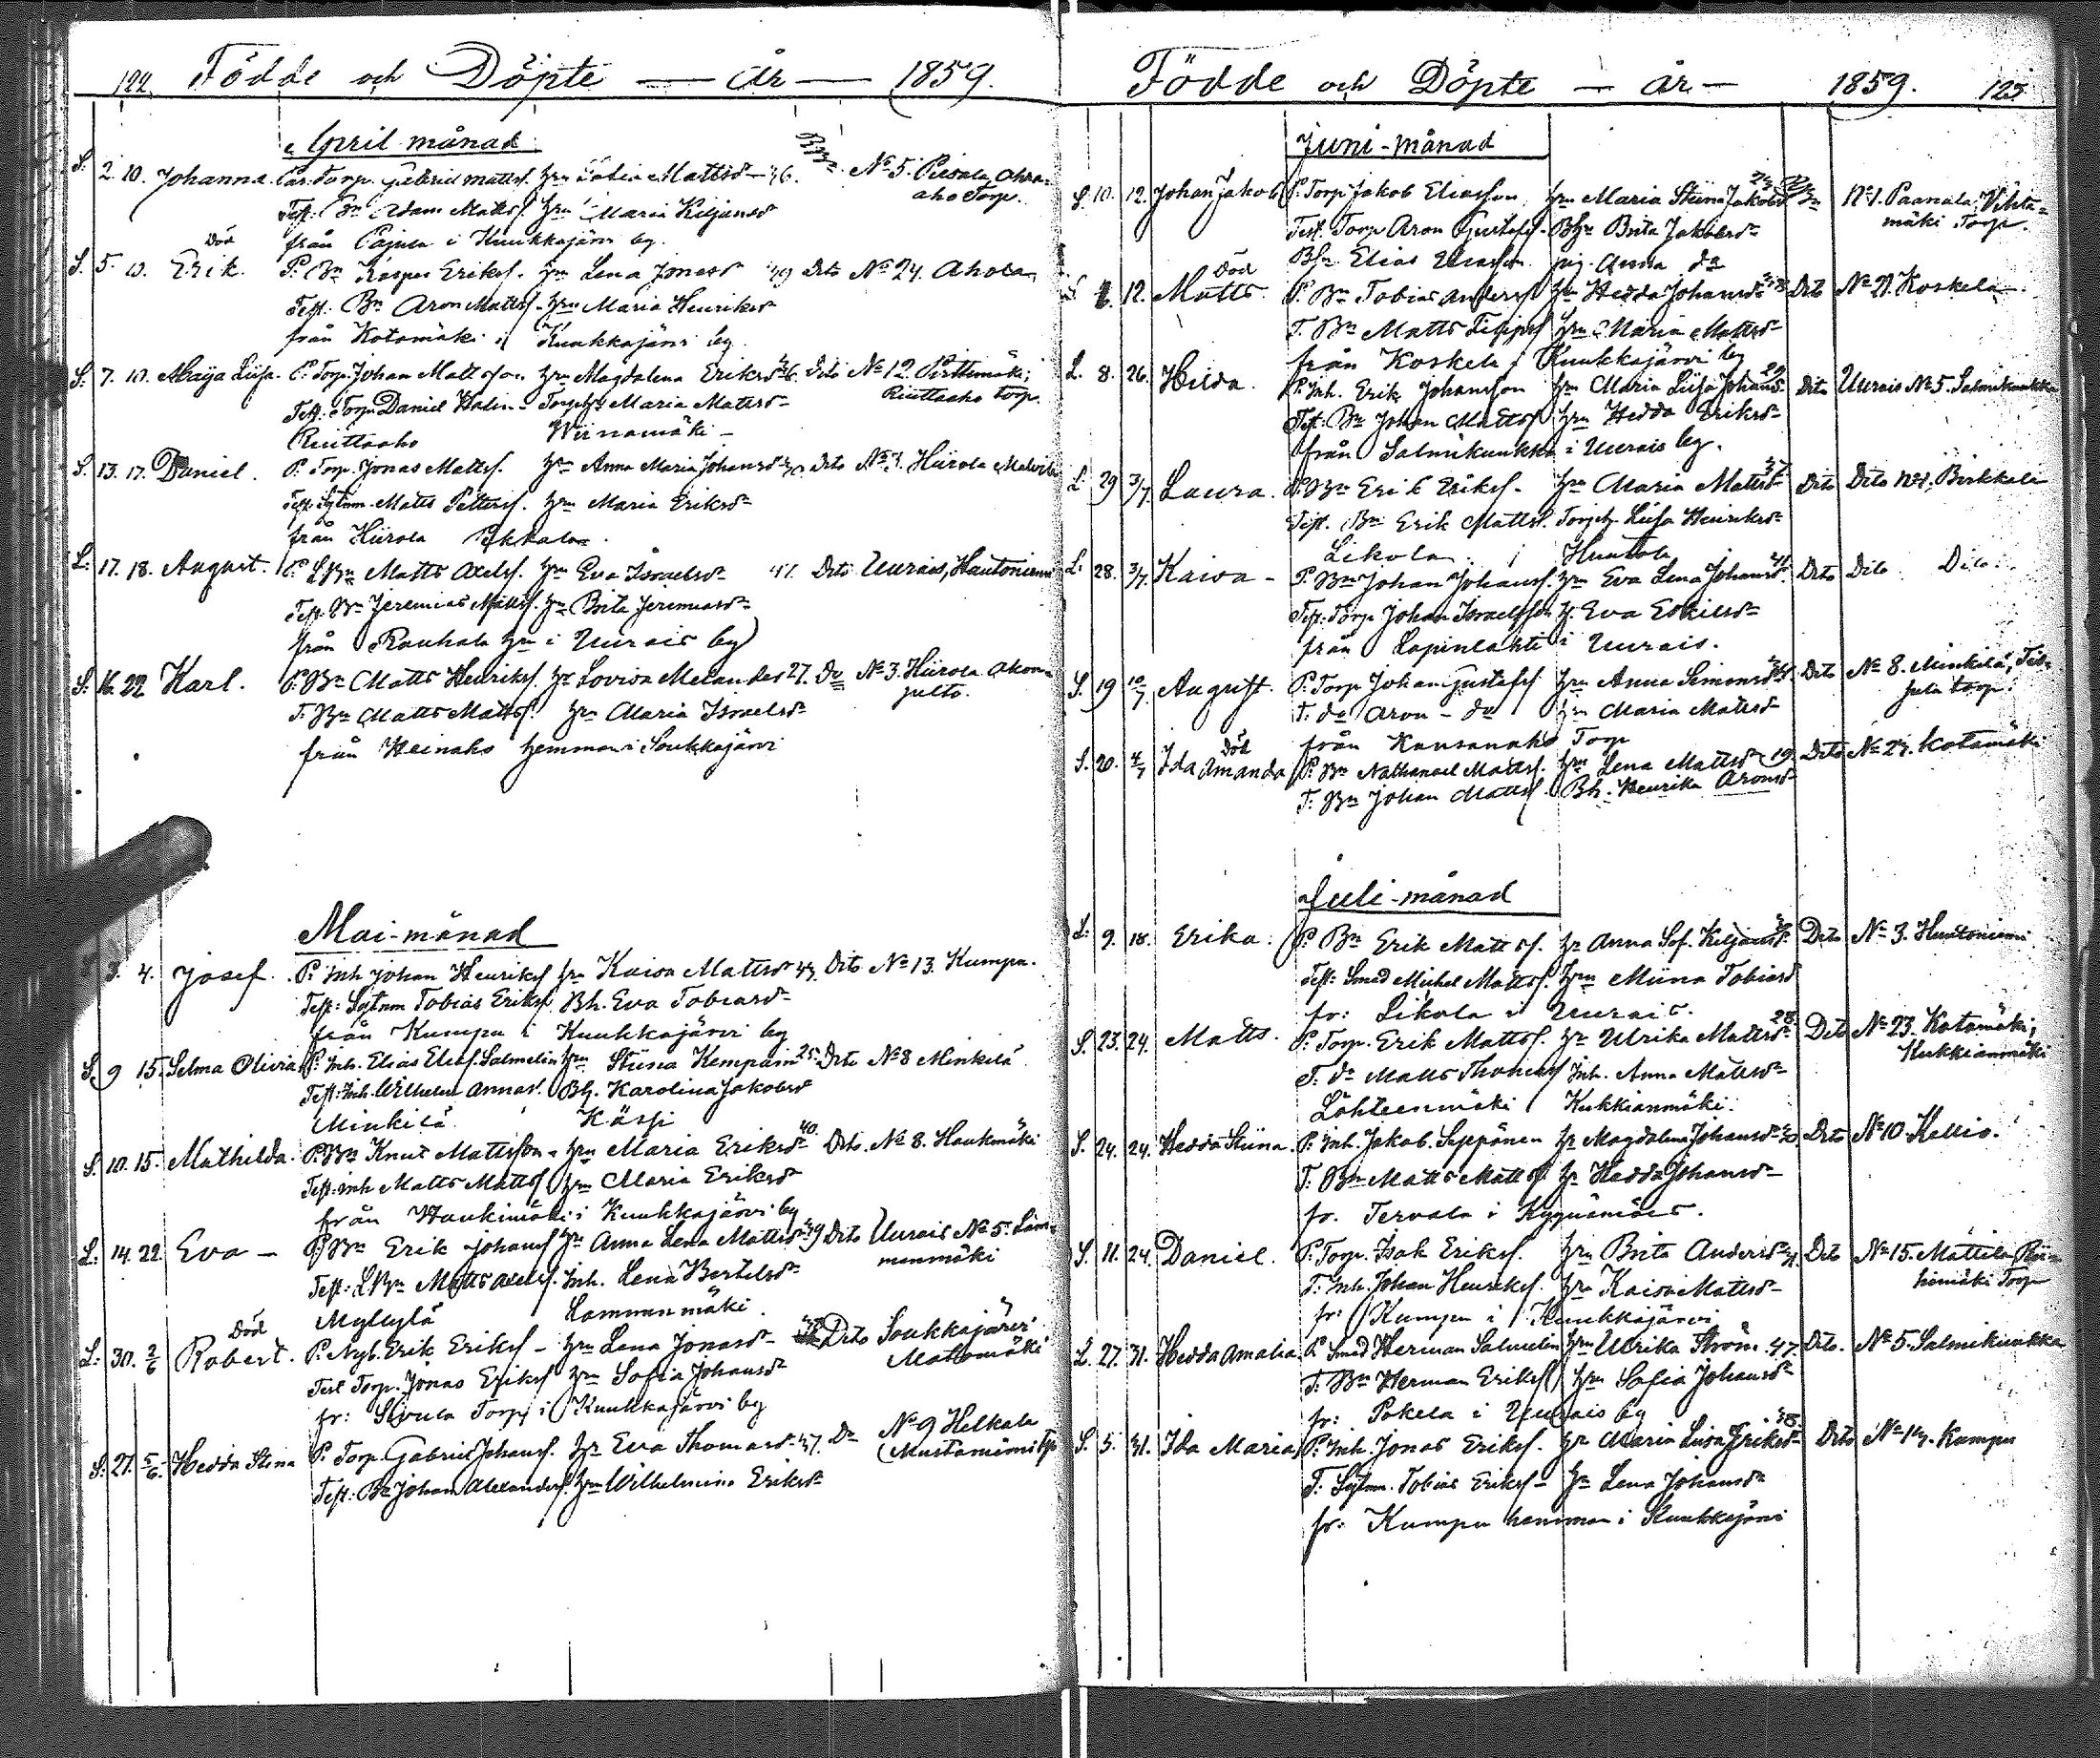 122. Födde och Döpte — år — 1859.
April månad
S. 2. 10. Johanna. Torp. Gabriel Mattsf. Hru Mattsdr 46. No 5. Piesala Ahra-
aho Torp.
Test. Bn Adam Mattsf. Hru Maria Kiljansdr
från Pajula i Kuukkajärvi by.
S. 5. 10. Död Erik. P. Bn Kasper Eriksf. Hru Lena Jonasdr 49 Dito No 24. Ahola
Test. Bn Aron Mattsf. Hru Maria Henriksdr
från Kotomäki i Kuukkajärvi by
S. 7. 10. Maija Liisa. P. Torp. Johan Mattsson Hru Magdalena Eriksdr Dito No 12. Pirttimäki,
Riuttaaho torp.
Test. Torp. Daniel Maria Mattsdr
Riuttaaho Wiinamäki
S. 13. 17. Daniel. P. Torp. Jonas Mattsf. Hru Anna Maria Johansdr Dito No 3. Hiirola
Test. Sytnm. Matts Pettersf. Hru Maria Eriksdr
från Hiirola Pekkala.
L. 17. 18. August. P. LBn Matts Axelsf. Hru Eva Israelsdr 41. Dito Uurais, Hautoniemi
Test. Bn Jeremias Mattsf. Hru Brita Jeremiasdr
från Rauhala Hmn i Uurais by
S. 16. 22 Karl. P. Bn Matts Henriksf. Hr Lovisa Melander 27. Do No 3. Hiirola Akon-
T. Bn Matts Mattsf. Hru Maria Israelsdr
från Heinaho hemman i Soukkajärvi
Mai-månad
3. 4. Josef. P. Inh Johan Henriksf Hru Kaisa Mattsdr 43. Dito No 13. Kumpu.
Test: Sytnm Tobias Eriksf. Bh. Eva Tobiasdr
från Kumpu i Kuukkajärvi by
S. 9 15. Selma Olivia P. Inh. Elias Eliesf. Salmelin Hru Stiina Kempain 25. Dito No 8 Minkilä
Test: Inh. Wilhelm Annasf. Bh. Karolina Jakobsdr
Minkilä. Kässi
S. 10. 15. Mathilda. P. Bn Knut Mattsson Hru Maria Eriksdr 40. Dito. No 8. Haukimäki
Test. Inh Matts Mattsf. Hru Maria Eriksdr
från Haukimäki i Kuukkajärvi by
L: 14. 22. Eva — P. Bn Erik Johansf Hr Anna Lena Mattsdr 39 Dito Uurais No 5. Läm-
menmäki
Test: LBn Matts Axelsf. Inh. Lena Bertelsdr
Myllylä Lammenmäki.
L: 30. 2/6 Död Robert. P. Nyb. Erik Eriksf — Hru Lena Jonasdr Dito Soukkajärvi
Test Torp. Jonas Eriksf Hru Sofia Johansdr
fr: Torp i Kuukkajärvi by
S. 27. 5/6. Hedda Stina P. Torp. Gabriel Johansf. Hr Eva Thomasdr 37. Do No 9 Helkala
(Mustaniemi Tp
Test. Bn Johan Alexandersf. Hru Wilhelmina Eriksdr
Födde och Döpte — år — 1859. 125
Juni-månad
S. 10. 12. Johan Jakob P. Torp Jakob Eliasson, Hru Maria Stiina Jakobsdr No 1. Paanala, Vihta-
mäki Torp.
Test. Torp Aron Gustafsf. Bhn Brita Jakobsdr
Bsn. Elias Eliasson pig. Anna do
12. Död Matts. P. Bn Tobias Andersf Hru Hedda Johansdr Dito No 21. Koskela
T. Bn Matts Hru Maria Mattsdr
från Koskela i Kuukkajärvi by
L. 8. 26. Hilda. P. Inh. Erik Johansson Hru Maria Liisa Johansdr. 29 Dito Uurais No 5. Salmikuukka
Test. Bn Johan Mattsf Hru Hedda Eriksdr
från Salmikuukka i Uurais by.
L. 29 3/7 Laura. P. Bn Erik Eriksf. Hru Maria Mattsdr Dito Dito No 1, Birkkala
Test. Bn Erik Mattsf. Liisa Henriksdr
Likola.
L. 28. 3/7. Kaisa — P. Bn Johan Johansf. Hru Eva Lena Johansdr. 41 Dito Dito Dito.
Test. Torp. Johan Israelsson H. Eva Eskilsdr
från Lapinlahti i Uurais.
S. 19 10/7 August. P. Torp Johan Gustafsf Hru Anna Simonsdr Dito No 8. Minkilä,
T. do Aron — do Hru Maria Mattsdr
från Kansanaho Torp
S. 20. 4/7 Död Ida Amanda P. Bn Nathanael Mattsf. Hru Lena Mattsdr 19. Dito No 24. Kotamäki
T. Bn Johan Mattsf. Bh. Henrika Aronsdr
Juli-månad
L: 9. 18. Erika: P. Bn Erik Mattsf. Hr Anna Sof. Kiljansdr. Dito No 3. Huutoniemi
Test: Smed Michel Mattsf. Hru Miina Tobiasdr
fr: Likola i Uurais.
S. 23. 24. Matts. P. Torp. Erik Mattsf. Hr Ulrika Mattsdr 28. Dito No 23. Kotamäki,
Kukkianmäki
T. do Matts Thomasf Inh. Anna Mattsdr
Lähteenmäki Kukkianmäki.
S. 24. 24. Hedda Stiina. P. Inh. Jakob Seppänen Hr Magdalena Johansdr Dito No 10 Kellio.
T. Bn Matts Mattsf. Hr Hedda Johansdr
fr. Tervala i Kyynämöis.
S. 11. 24. Daniel. P. Torp. Isak Eriksf. Hru Brita Andersdr Dito No 15. Mattila, Rii-
himäki Torp
T. Inh. Johan Henriksf. Hru Kaisa Mattsdr
fr: Kumpu i Kuukkajärvi
L. 27. 31. Hedda Amalia. P. Smed Herman Salmelin Hru Ulrika Ström. 47. Dito. No 5. Salmikuukka
T. Bn Herman Eriksf Hru Sofia Johansdr
fr: Pokela i Uurais by
S. 5. 31. Ida Maria P. Inh. Jonas Eriksf. Hr Maria Liisa Eriksdr 38. Dito No 14. Kumpu
T. Sytnm. Tobias Eriksf — Hr Lena Johansdr
fr: Kumpu hemman i Kuukkajärvi